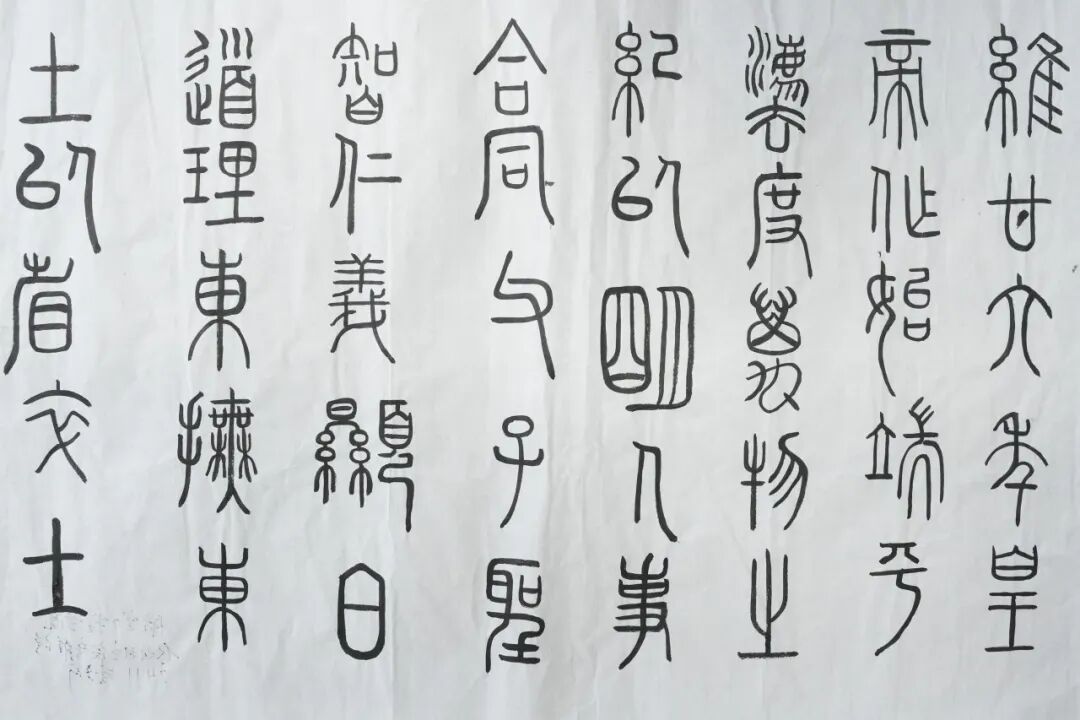 維廿六年皇
帝作始端平
灋度萬物之
紀以明人事
合同父子聖
智仁義顯白
道理東撫東
土以省卒士